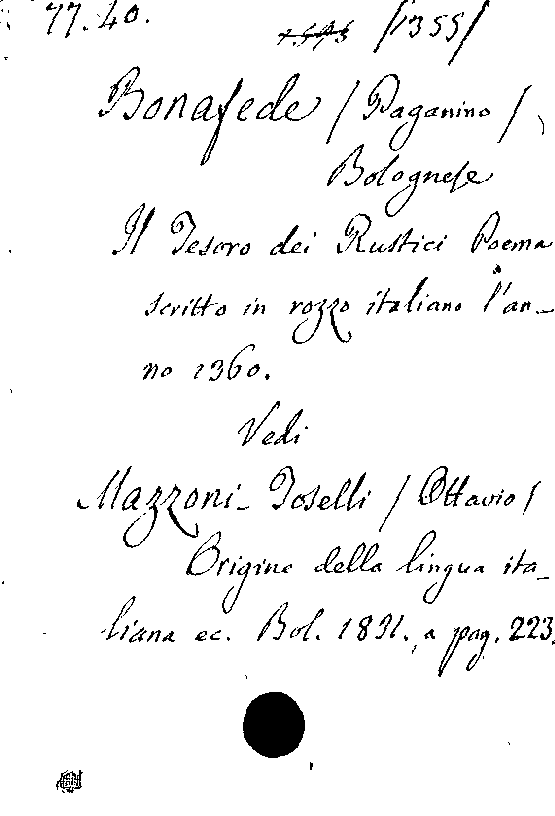 77.40. /1355/
Bonafede / Paganino /
Bolognese
Il Tesoro dei Rustici Poema
scritto in rozzo italiano l'an-
no 1360.
Vedi
Mazzoni-Toselli / Ottavio /
Origine della lingua ita-
liana ec. Bol. 1831., a pag. 223.